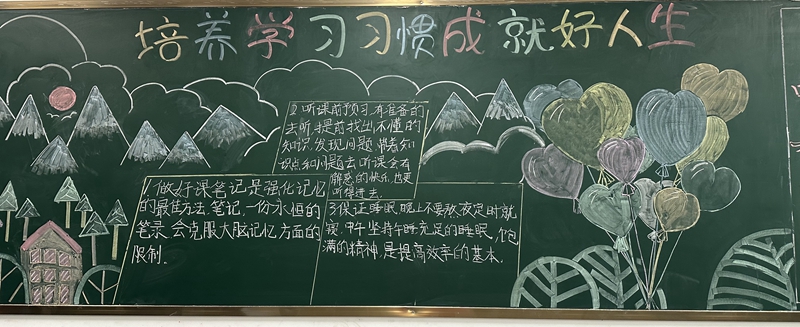 培养学习习惯成就好人生
1.做好课笔记是强化记忆
的最佳方法,笔记,一份永恒的
笔录,会克服大脑记忆方面的
限制.
2.听课前预习,有准备的
去听,提前找出不懂的
知识,发现问题,带着知
识点和问题去听课会有
解惑的快乐,也更
听得进去.
3保证睡眠,晚上不要熬夜定时就
寝.中午坚持午睡充足的睡眠、饱
满的精神,是提高效率的基本.